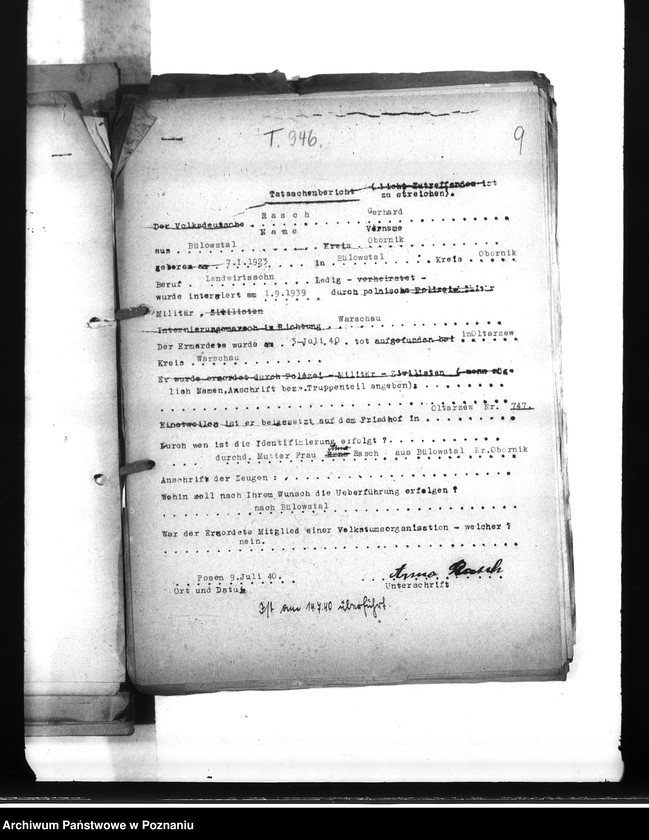 T. 946.
9
Tatsachenbericht (Nicht Zutreffendes ist
zu streichen).
Rasch Gerhard
Der Volksdeutsche
Name Vorname
aus Bülowstal Kreis Obornik
geboren am 7.I.1923 in Bülowstal Kreis Obornik
Beruf Landwirtssohn Ledig - verheiratet -
wurde interniert am 1.9.1939 durch polnische Polizei - Militär
Militär, Zivilisten
Internierungsmarsch in Richtung Warschau
Der Ermordete wurde am 3.Juli 40 tot aufgefunden bei in Oltarzew
Kreis Warschau
Er wurde ermordet durch Polizei - Militär - Zivilisten (wenn mög-
lich Namen, Anschrift bezw. Truppenteil angeben):
Einstweilen ist er beigesetzt auf dem Friedhof in Oltarzew Nr. 747.
Durch wen ist die Identifizierung erfolgt ?
durch d. Mutter Frau Anna Rasch aus Bülowstal Kr.Obornik
Anschrift der Zeugen :
Wohin soll nach Ihrem Wunsch die Ueberführung erfolgen ?
nach Bülowstal
War der Ermordete Mitglied einer Volkstumsorganisation - welcher ?
nein.
Posen 9.Juli 40. Anna Rasch
Ort und Datum Unterschrift
Ist am 14.7.40 überführt.
Archiwum Państwowe w Poznaniu